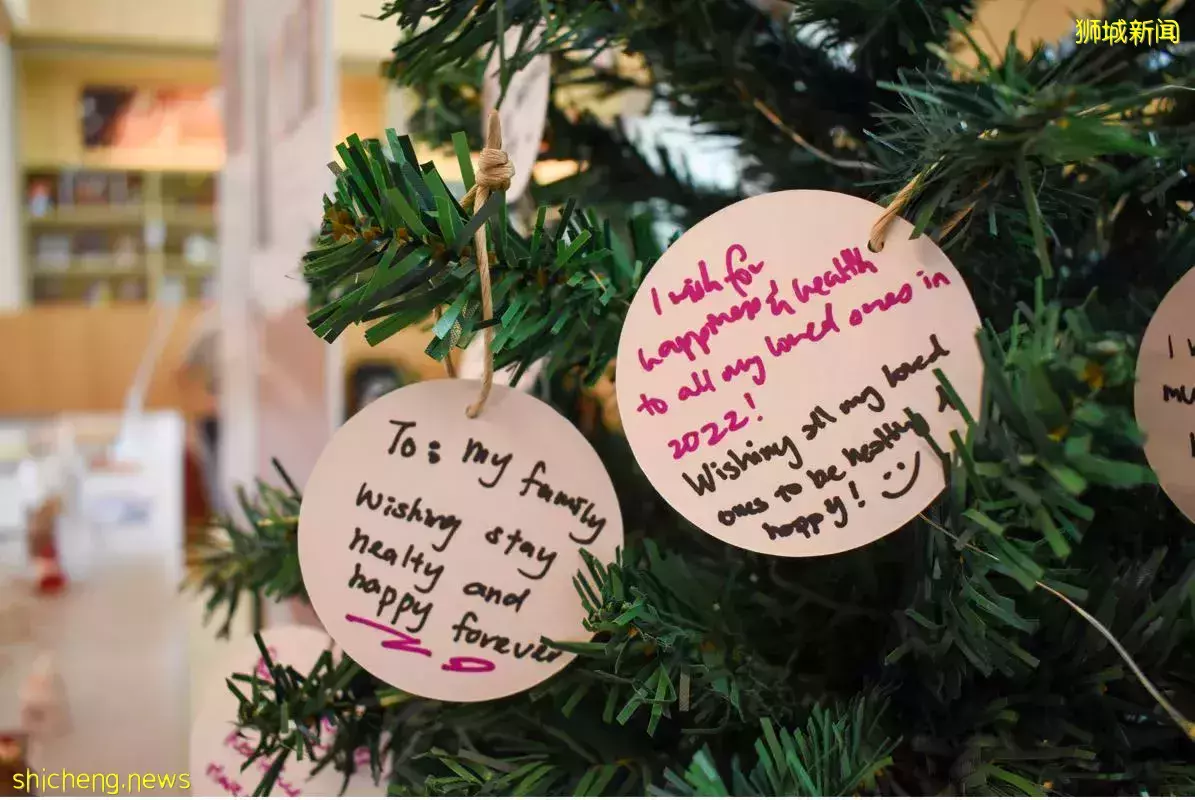 狮城新闻
I wish for
happiness & health
to all my loved ones in
2022!
Wishing all my loved
ones to be healthy &
happy! :)
To: my family
Wishing stay
healty and
happy forever
I
mu
shicheng.news